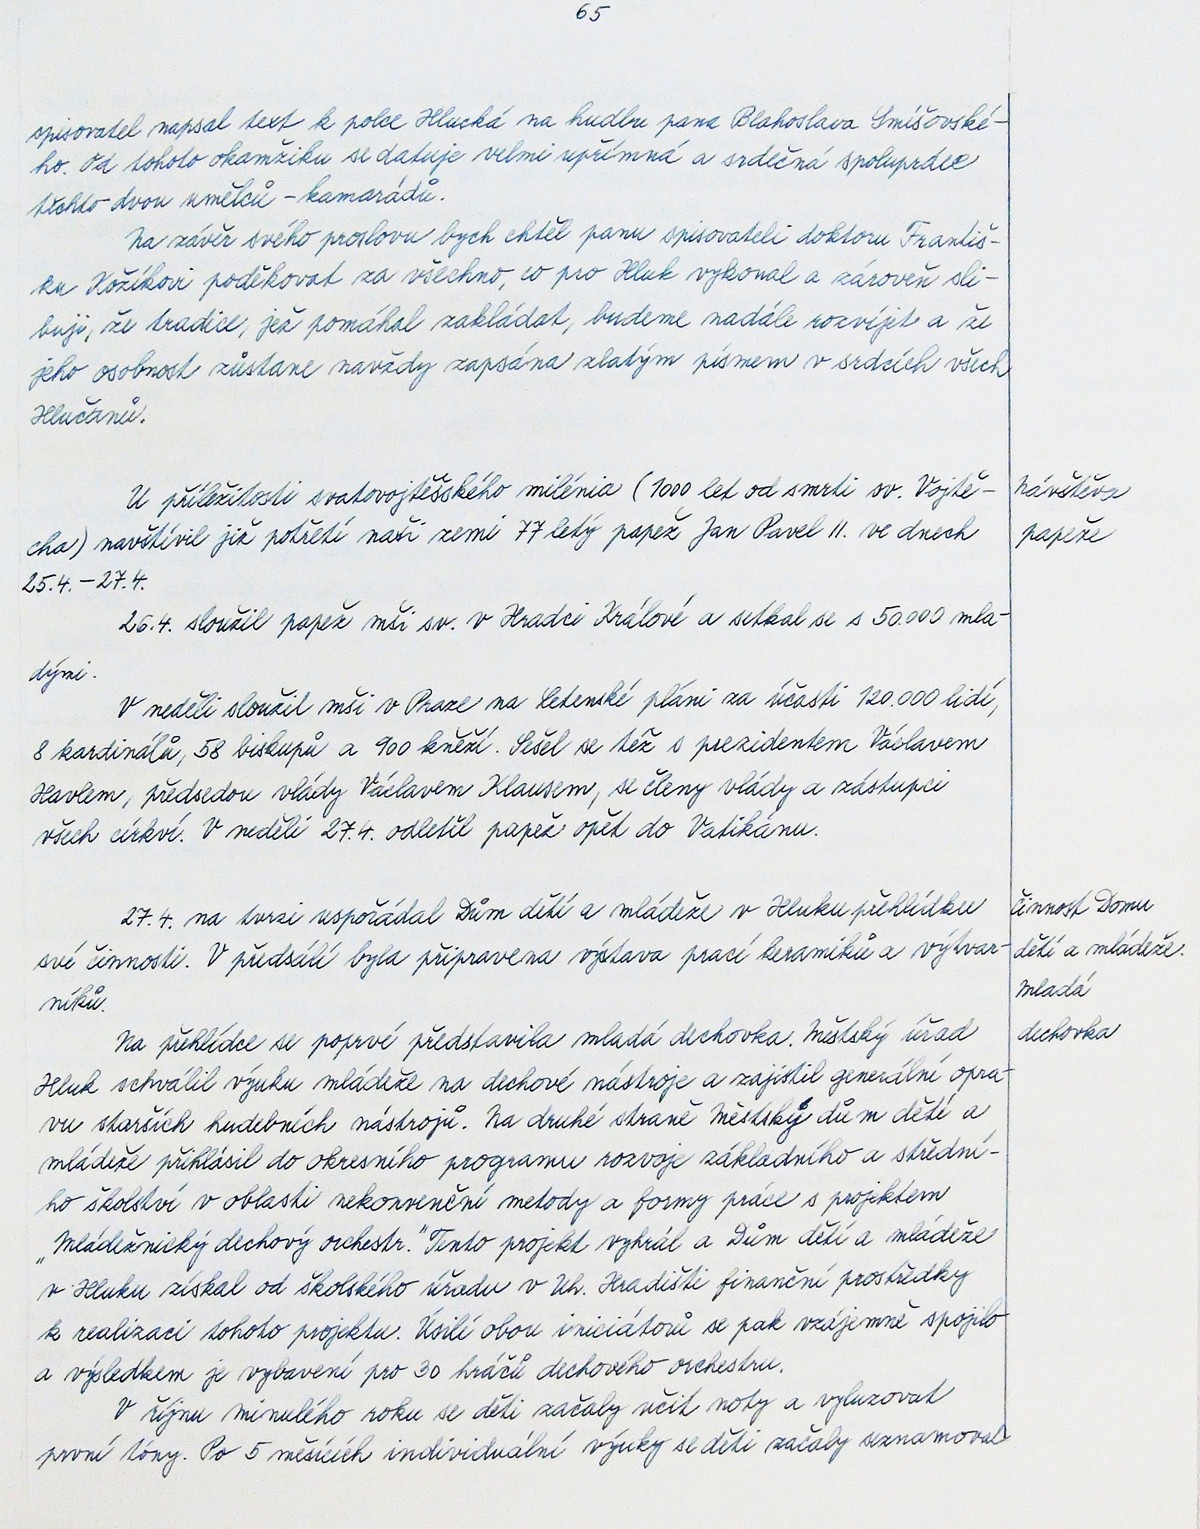 65
spisovatel napsal text k polce Hlucká na hudbu pana Blahoslava Smišovské-
ho. Od tohoto okamžiku se datuje velmi upřímná a srdečná spolupráce
těchto dvou umělců – kamarádů.
Na závěr svého proslovu bych chtěl panu spisovateli doktoru Františ-
ku Kožíkovi poděkovat za všechno, co pro Hluk vykonal a zároveň sli-
buji, že tradice, jež pomáhal zakládat, budeme nadále rozvíjet a že
jeho osobnost zůstane navždy zapsána zlatým písmem v srdcích všech
Hlučanů.
U příležitosti svatovojtěšského milénia (1000 let od smrti sv. Vojtě-
cha) navštívil již potřetí naši zemi 77 letý papež Jan Pavel II. ve dnech
25.4. – 27.4.
Návštěva
papeže
26.4. sloužil papež mši sv. v Hradci Králové a setkal se s 50.000 mla-
dými.
V neděli sloužil mši v Praze na Letenské pláni za účasti 120.000 lidí,
8 kardinálů, 58 biskupů a 900 kněží. Sešel se též s prezidentem Václavem
Havlem, předsedou vlády Václavem Klausem, se členy vlády a zástupci
všech církví. V neděli 27.4. odletěl papež opět do Vatikánu.
27.4. na tvrzi uspořádal Dům dětí a mládeže v Hluku přehlídku
své činnosti. V předsálí byla připravena výstava prací keramiků a výtvar-
níků.
činnost Domu
dětí a mládeže.
Mladá
dechovka
Na přehlídce se poprvé představila mladá dechovka. Městský úřad
Hluk schválil výuku mládeže na dechové nástroje a zajistil generální opra-
vu starších hudebních nástrojů. Na druhé straně Městský dům dětí a
mládeže přihlásil do okresního programu rozvoje základního a střední-
ho školství v oblasti nekonvenční metody a formy práce s projektem
„Mládežnický dechový orchestr." Tento projekt vyhrál a Dům dětí a mládeže
v Hluku získal od školského úřadu v Uh. Hradišti finanční prostředky
k realizaci tohoto projektu. Úsilí obou iniciátorů se pak vzájemně spojilo
a výsledkem je vybavení pro 30 hráčů dechového orchestru.
V říjnu minulého roku se děti začaly učit noty a vyluzovat
první tóny. Po 5 měsících individuální výuky se děti začaly seznamovat